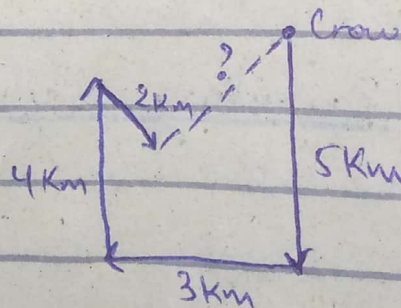 Crow
?
2km
4Km
5Km
3Km